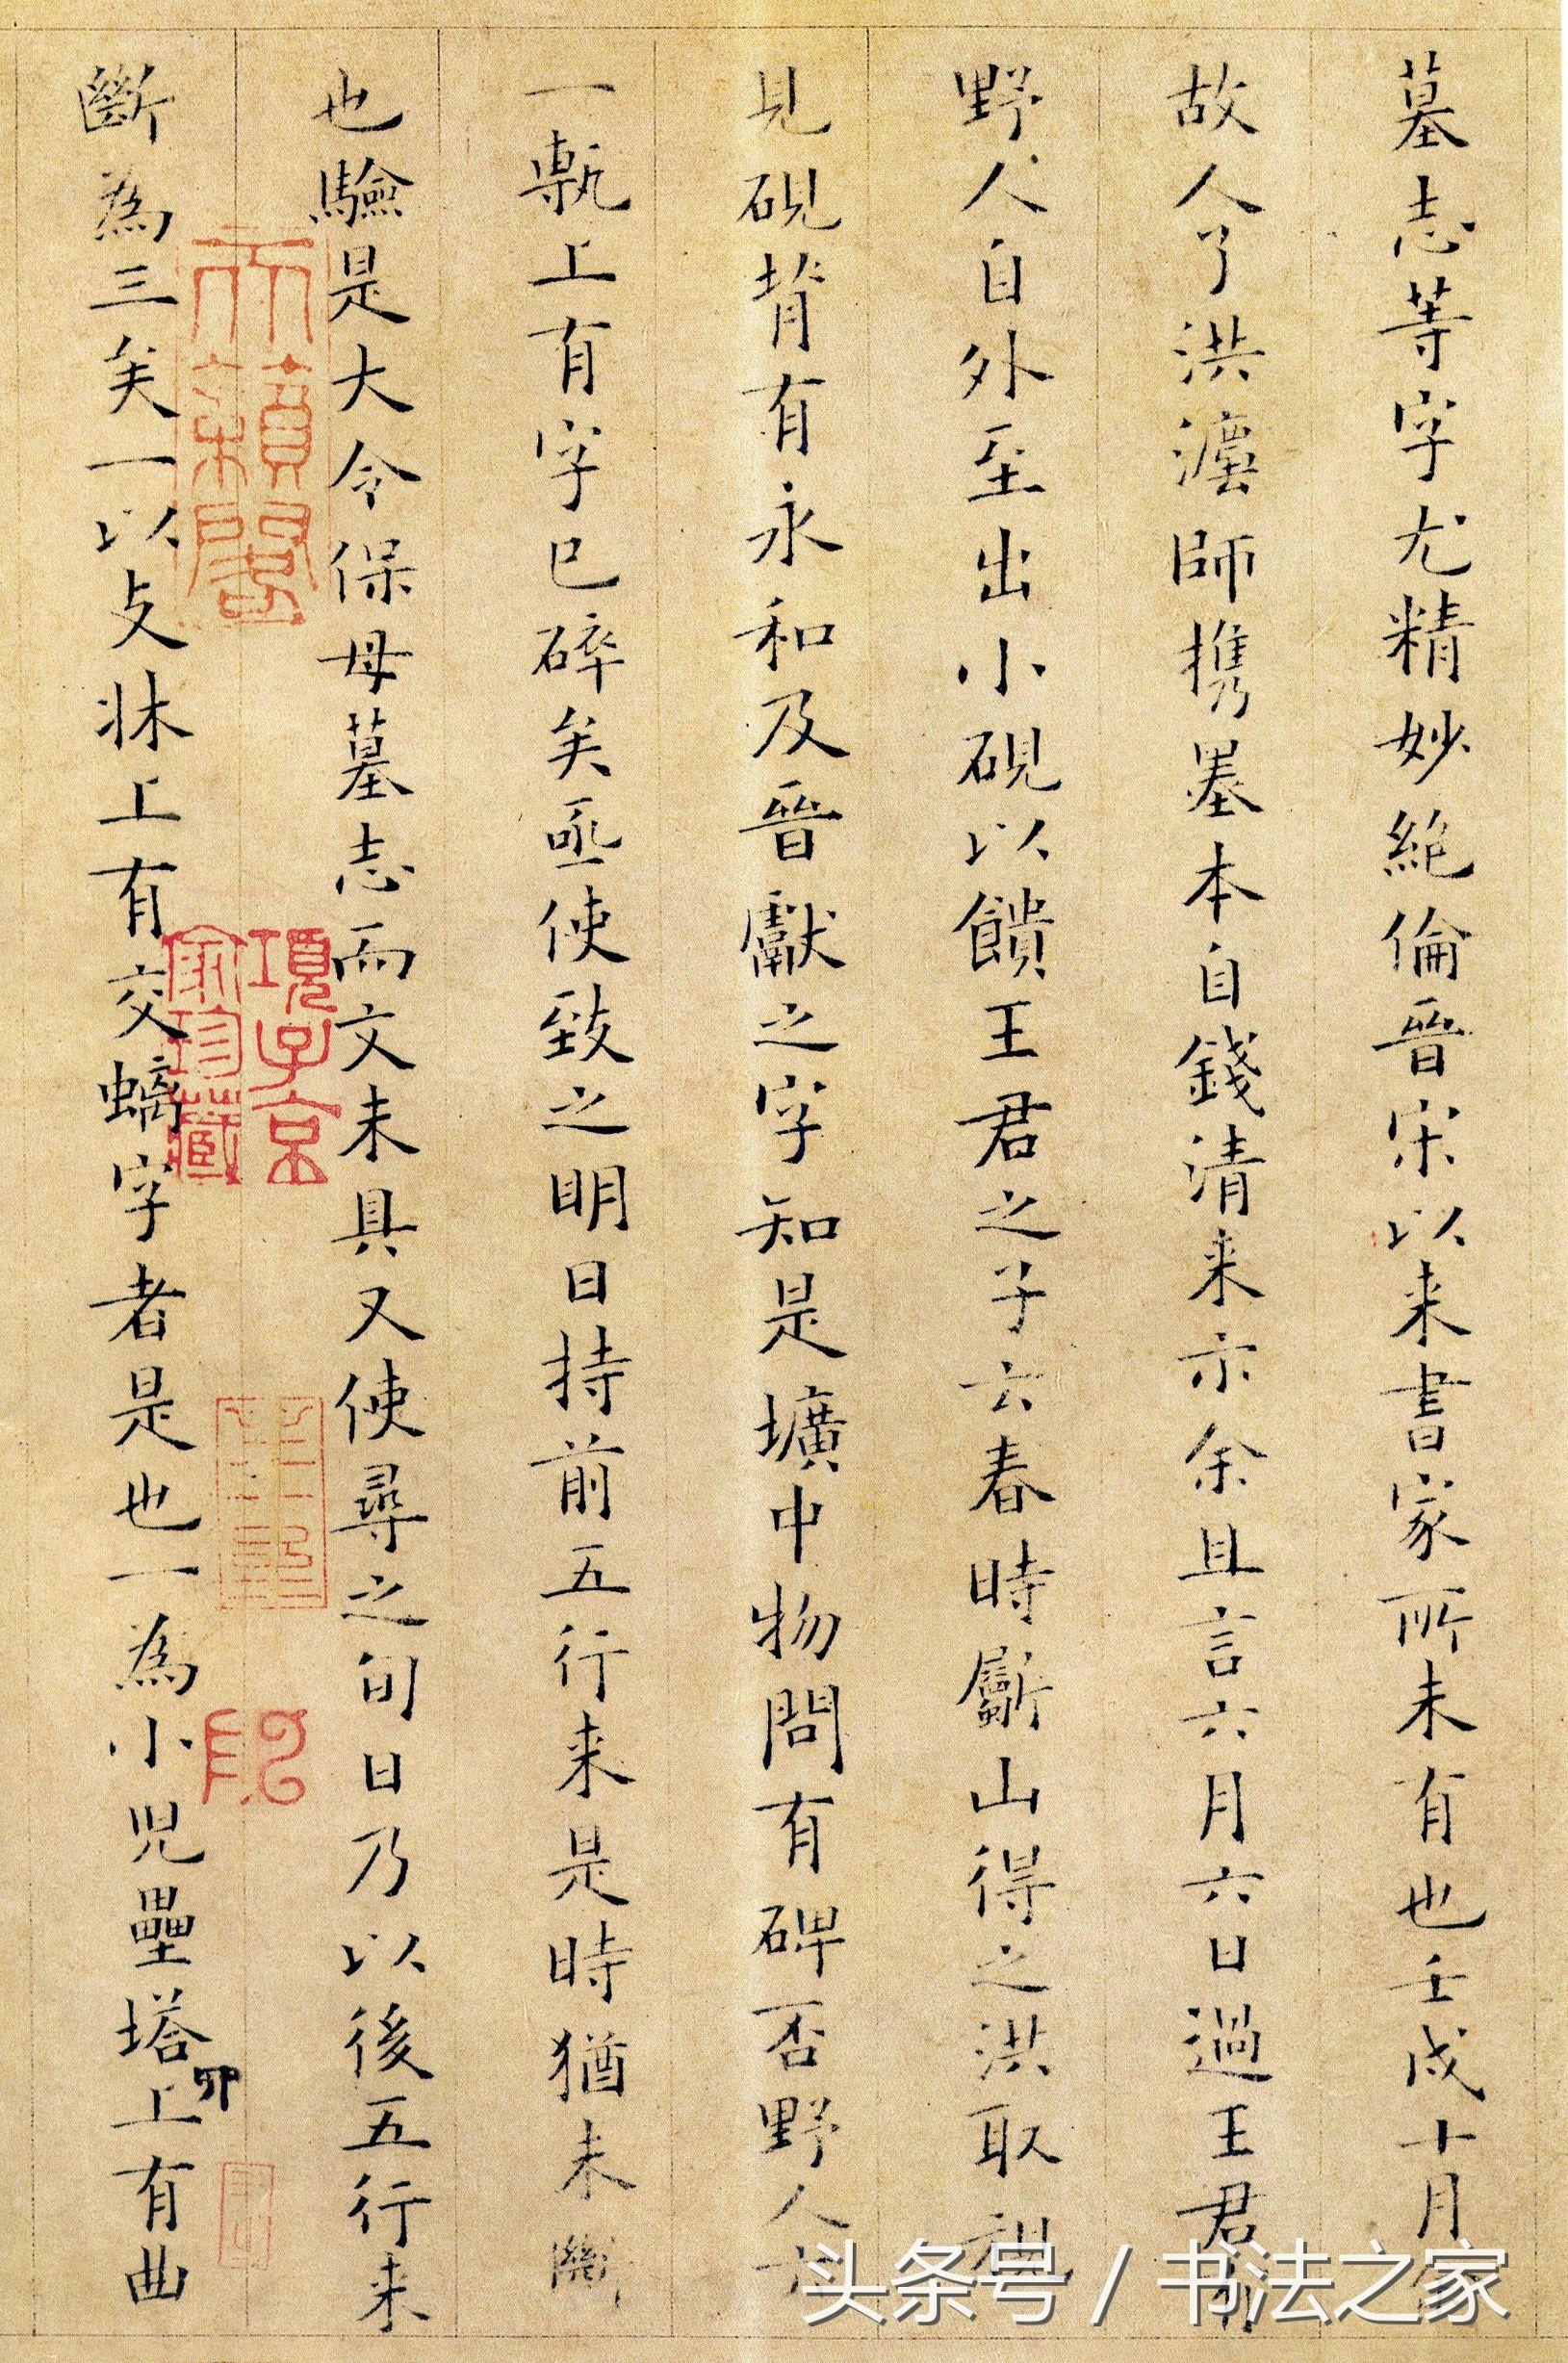 墓志等字尤精妙絕倫晉宋以来書家所未有也壬戌十月
故人了洪灋師携墨本自錢清来示余且言六月六日過王君
野人自外至出小硯以饋王君之子云春時斸山得之洪取視
見硯背有永和及晉獻之字知是壙中物問有碑否野人云
一甎上有字已碎矣亟使致之明日持前五行来是時猶未斷
也驗是大令保母墓志而文未具又使尋之旬日乃以後五行来
斷為三矣一以支牀上有交螭字者是也一為小児壘塔上有曲
項子京
家珍藏
卯
头条号 / 书法之家